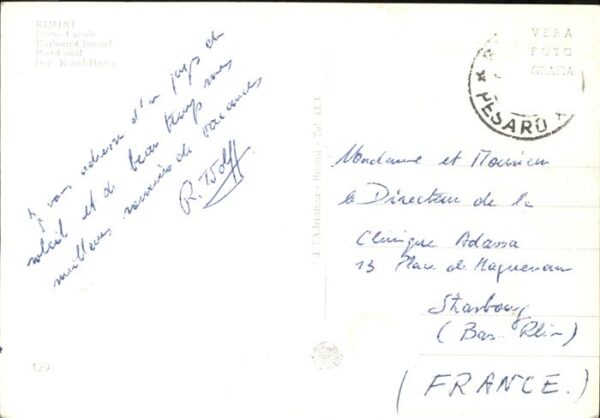 RIMINI
Porto Canale
Harbour-Channel
Port-Canal
Der Kanal-Hafen
VERA
FOTO
GRAFIA
PESARO
Je vous adresse d'un pays de
soleil et de beau temps mes
meilleurs souvenirs de vacances
R. Wolff
Madame et Monsieur
le Directeur de la
Clinique Adassa
13 Place de Haguenau
Strasbourg
(Bas-Rhin)
(FRANCE.)
129